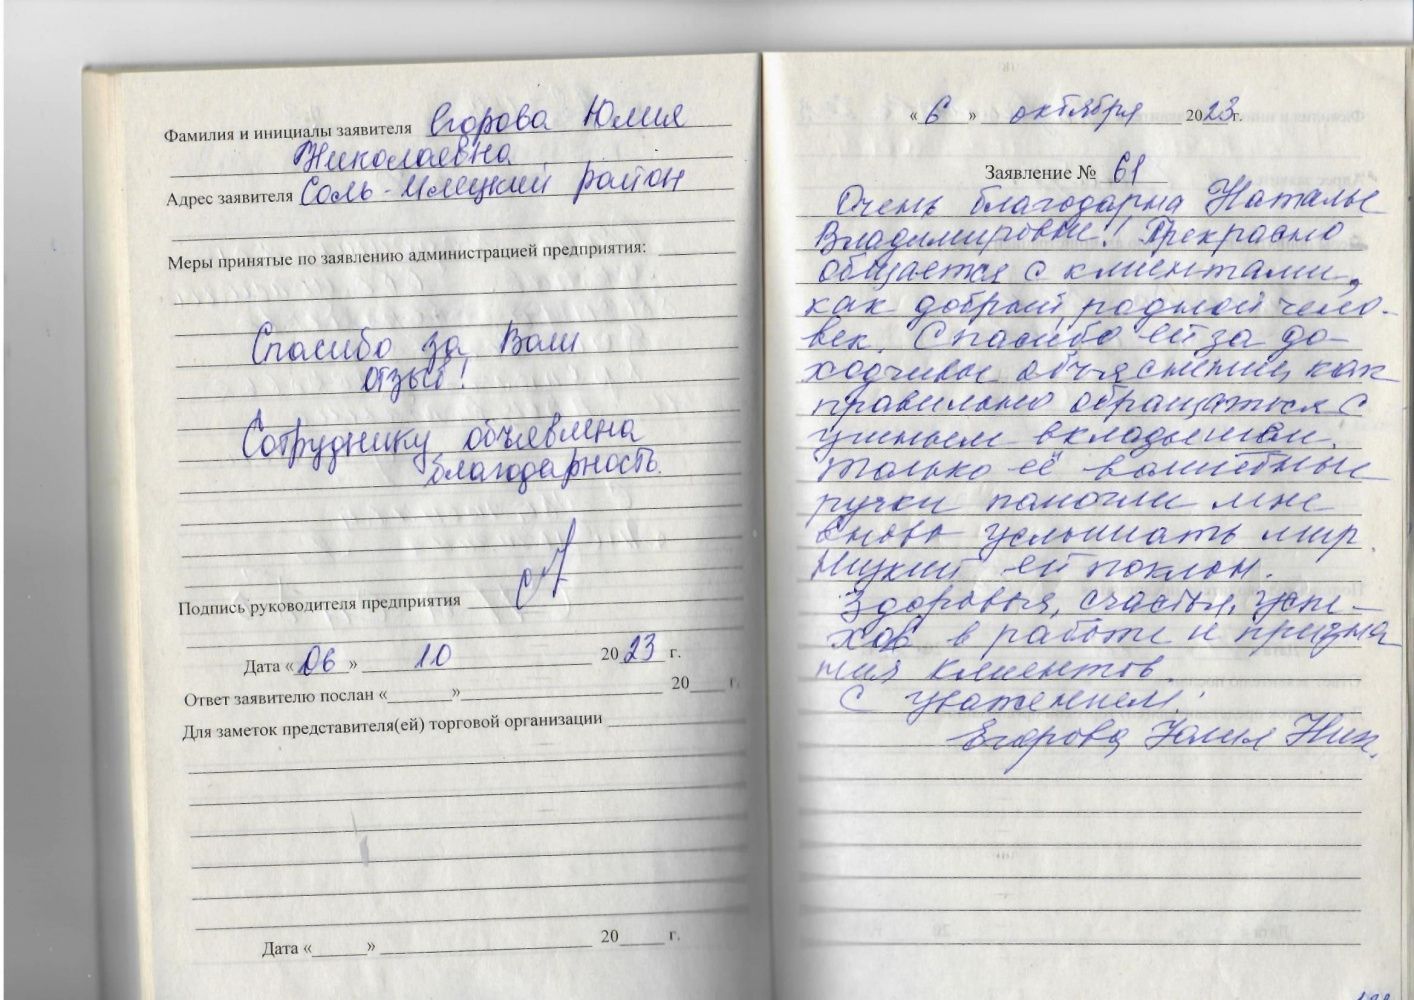 Фамилия и инициалы заявителя Егорова Юлия
Николаевна
Адрес заявителя Соль-Илецкий район
Меры принятые по заявлению администрацией предприятия:
Спасибо за Ваш
отзыв!
Сотруднику объявлена
благодарность.
Подпись руководителя предприятия
Дата «06» 10 2023 г.
Ответ заявителю послан «» 20 г.
Для заметок представителя(ей) торговой организации
Дата «» 20 г.
«6» октября 2023г.
Заявление № 61
Очень благодарна Наталье
Владимировне! Прекрасно
общается с клиентами,
как добрый родной чело-
век. Спасибо ей за до-
ходчивые объяснения, как
правильно обращаться с
ушным вкладышем.
Только её волшебные
ручки помогли мне
вновь услышать мир.
Низкий ей поклон.
Здоровья, счастья, успе-
хов в работе и призна
ния клиентов.
С уважением!
Егорова Юлия Ник.